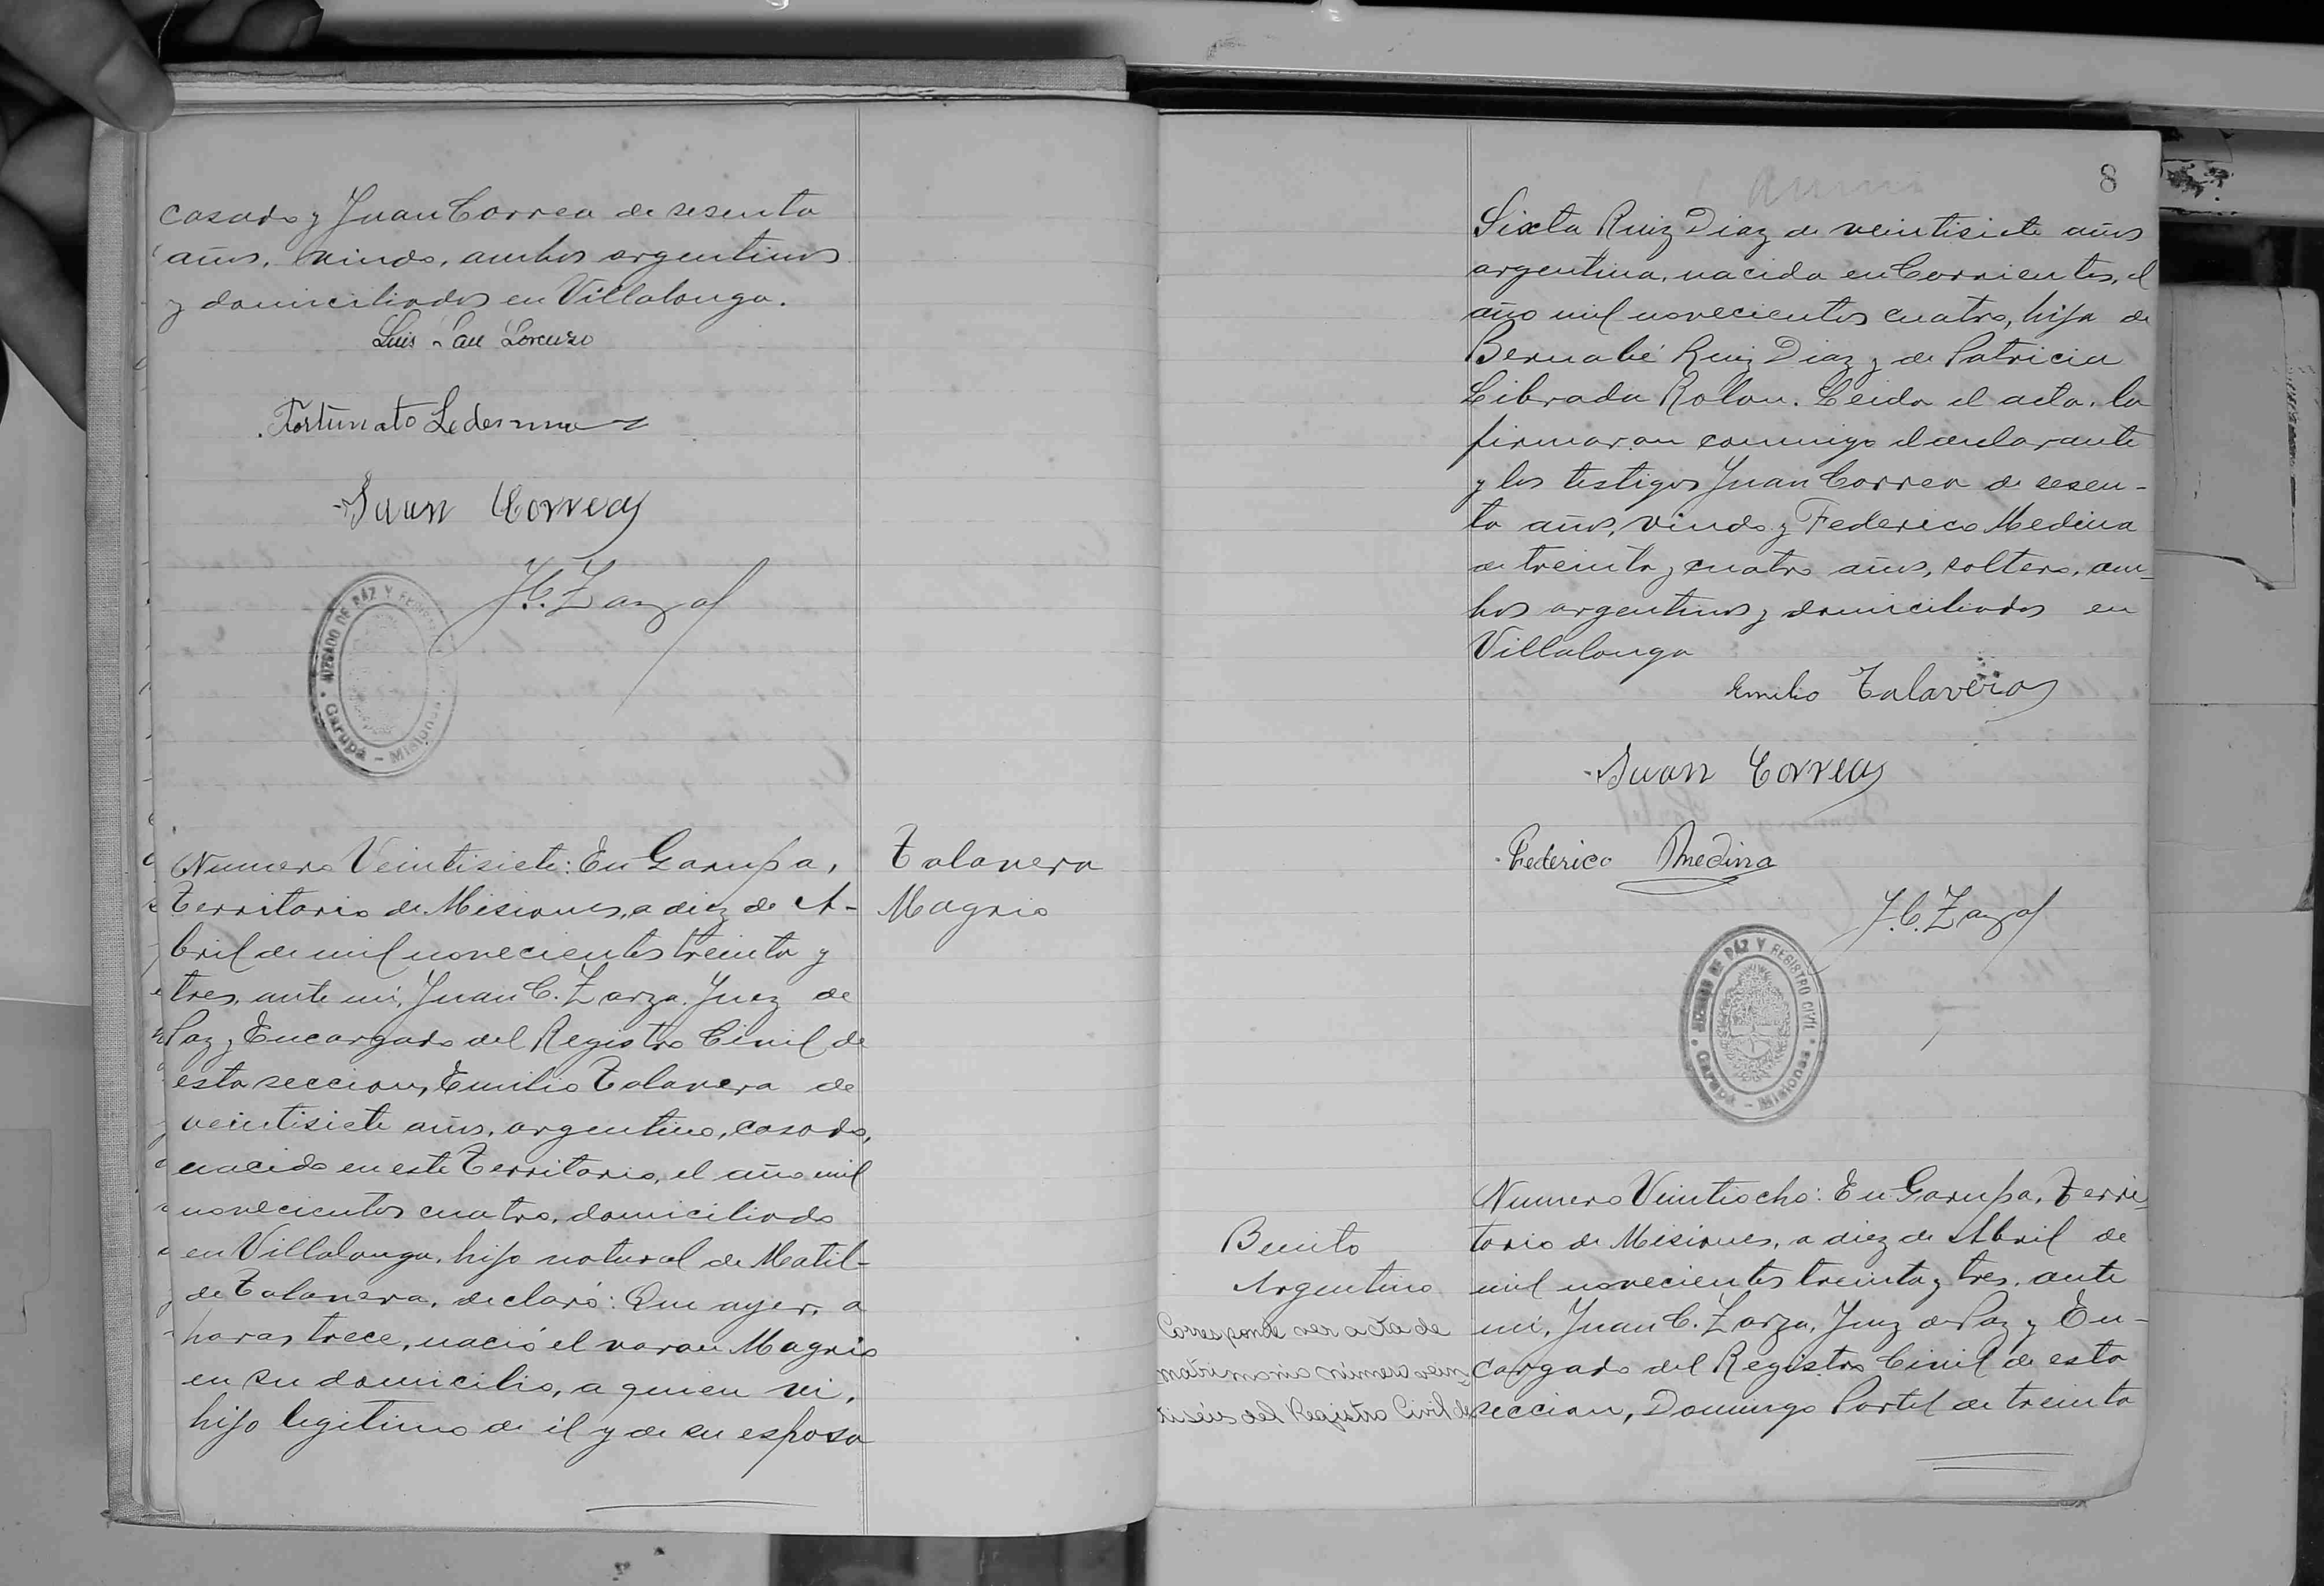 casado y Juan Correa de sesenta
años, viudo, ambos argentinos
y domiciliados en Villalonga.
Luis San Lorenzo
Fortunato Ledesma
Juan Correa
J.C. Zarza
JUZGADO DE PAZ Y REGISTRO
Garupá - Misiones
Numero Veintisiete: En Garupa,
Territorio de Misiones, a diez de A-
bril de mil novecientos treinta y
tres, ante mi, Juan C. Zarza. Juez de
Paz y Encargado del Registro Civil de
esta seccion, Emilio Talavera de
veintisiete años, argentino, casado,
nacido en este Territorio, el año mil
novecientos cuatro, domiciliado
en Villalonga, hijo natural de Matil-
de Talavera, declaró: Que ayer, a
horas trece, nació el varon Magno
en su domicilio, a quien vi,
hijo legitimo de él y de su esposa
Talavera
Magno
8
Sixta Ruiz Diaz de veintisiete años
argentina, nacida en Corrientes, el
año mil novecientos cuatro, hija de
Bernabé Ruiz Diaz y de Patricia
Librada Rolon. Leida el acta, la
firmaron conmigo el declarante
y los testigos Juan Correa de sesen-
ta años, viudo y Federico Medina
de treinta y cuatro años, soltero, am-
bos argentinos y domiciliados en
Villalonga
Emilio Talavera
Juan Correa
Federico Medina
J.C. Zarza
JUZGADO DE PAZ Y REGISTRO CIVIL
Garupá - Misiones
Benito
Argentino
Corresponde ver acta de
matrimonio número vein-
tiséis del Registro Civil de
Numero Veintiocho: En Garupa, Terri-
torio de Misiones, a diez de Abril de
mil novecientos treinta y tres, ante
mi, Juan C. Zarza, Juez de Paz y En-
cargado del Registro Civil de esta
seccion, Domingo Portel de treinta